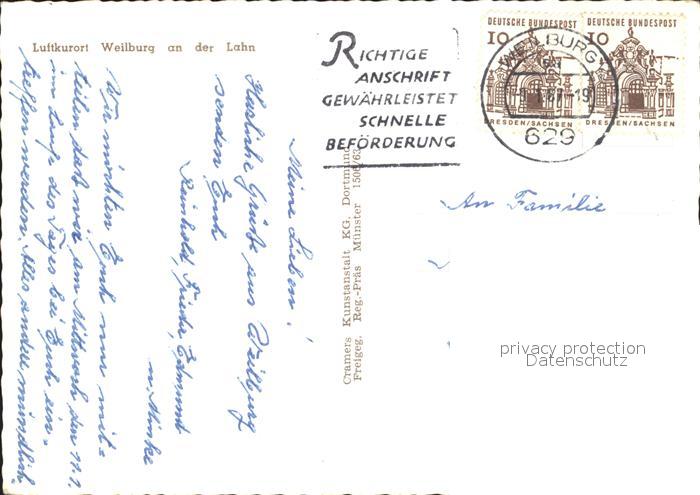 Luftkurort Weilburg an der Lahn
RICHTIGE
ANSCHRIFT
GEWÄHRLEISTET
SCHNELLE
BEFÖRDERUNG
DEUTSCHE BUNDESPOST
10
DRESDEN/SACHSEN
DEUTSCHE BUNDESPOST
10
DRESDEN/SACHSEN
WEILBURG
67-19
629
Meine Lieben!
Herzliche Grüße aus Weilburg
senden Euch
Reinhold, Friedr., Edmund
u. Minke
Wir möchten Euch nur mit=
teilen daß wir am Mittwoch den 11.1.
im Laufe des Tages bei Euch ein=
treffen werden. Alles andere mündlich.
Cramers Kunstanstalt KG. Dortmund
Freigeg. Reg.-Präs Münster 1506/63
An Familie
privacy protection
Datenschutz